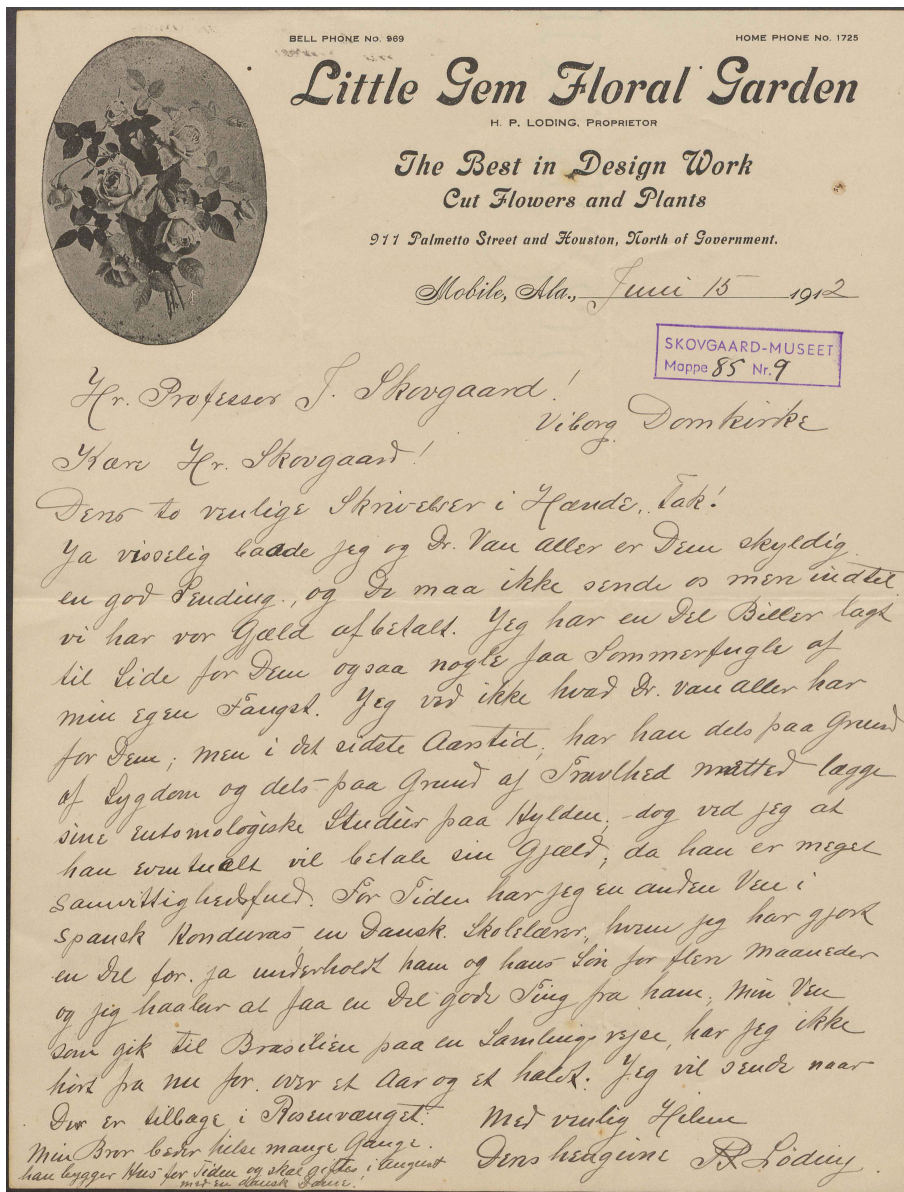 BELL PHONE No. 969
HOME PHONE No. 1725
Little Gem Floral Garden
H. P. LODING, PROPRIETOR
The Best in Design Work
Cut Flowers and Plants
911 Palmetto Street and Houston, North of Government.
Mobile, Ala., Juni 15 1912
SKOVGAARD-MUSEET
Mappe 85 Nr. 9
Hr. Professor J. Skovgaard!
Viborg Domkirke
Kære Hr. Skovgaard!
Deres to venlige Skrivelser i Hænde, Tak!
Ja visselig baade jeg og Dr. Van Aller er Dem skyldig
en god Sending, og De maa ikke sende os mere indtil
vi har vor Gjæld afbetalt. Jeg har en Del Biller lagt
til Side for Dem ogsaa nogle faa Sommerfugle af
min egen Fangst. Jeg ved ikke hvad Dr. van Aller har
for Dem; men i det sidste Aarstid, har han dels paa Grund
af Sygdom og dels paa Grund af Travlhed matted lægge
sine entomologiske Studier paa Hylden; dog ved jeg at
han eventuelt vil betale sin Gjæld, da han er meget
samvittighedsfuld. For Tiden har jeg en anden Ven i
Spansk Honduras, en Dansk Skolelærer, hvem jeg har gjort
en Del for. ja underholdt ham og hans Søn for flere Maaneder
og jeg haaber at faa en Del gode Ting fra ham; Min Ven
som gik til Brasilien paa en Samlingsrejse, har jeg ikke
hørt fra nu for over et Aar og et halvt. Jeg vil sende naar
De er tilbage i Rosenvænget. Med venlig Hilsen
Min Bror beder hilse mange Gange. Deres hengivne HP Löding
han bygger Hus for Tiden og skal giftes i August
med en dansk Dame!